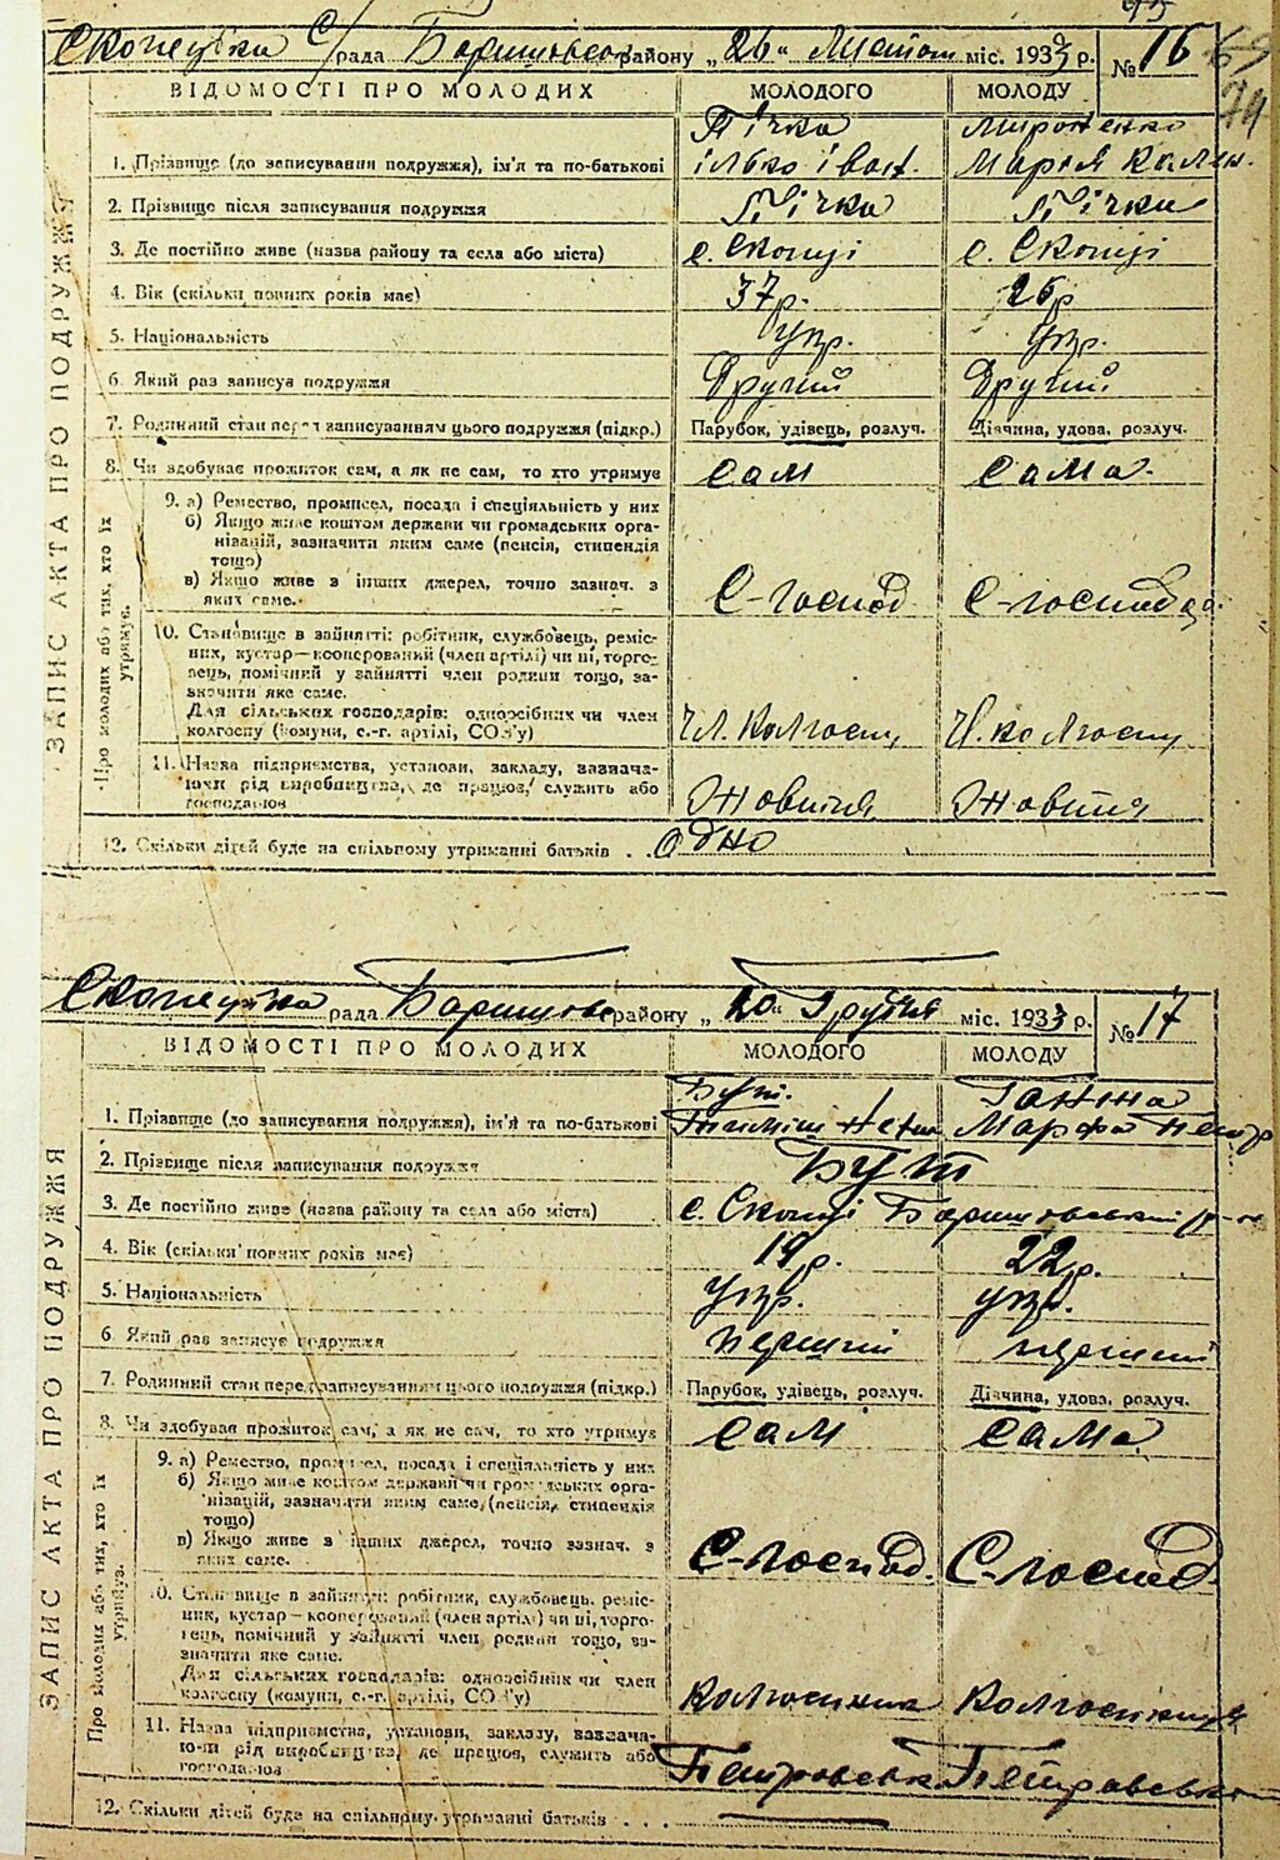 Скопецька С/рада Баришівськ району „26" Листоп міс. 1933 р. № 16
ВІДОМОСТІ ПРО МОЛОДИХ МОЛОДОГО МОЛОДУ
Пічка Мироненко
1. Прізвище (до записування подружжя), ім'я та по-батькові ілько іван. Марія Калин.
2. Прізвище після записування подружжя Пічка Пічка
3. Де постійно живе (назва району та села або міста) с. Скопці с. Скопці
4. Вік (скільки повних років має) 37 р. 26 р
5. Національність Укр. Укр.
6. Який раз записує подружжя Другий Другий
7. Родинний стан перед записуванням цього подружжя (підкр.) Парубок, удівець, розлуч. Дівчина, удова, розлуч.
8. Чи здобуває прожиток сам, а як не сам, то хто утримує сам сама.
9. а) Ремество, промисел, посада і спеціяльність у них
б) Якщо живе коштом держави чи громадських орга-
нізацій, зазначити яким саме (пенсія, стипендія
тощо)
в) Якщо живе з інших джерел, точно зазнач. з
яких саме. С-господ С-господ
10. Становище в зайнятті: робітник, службовець, реміс-
ник, кустар—кооперований (член артілі) чи ні, торго-
вець, помічний у зайнятті член родини тощо, за-
значити яке саме.
Для сільських господарів: одноосібник чи член
колгоспу (комуни, с.-г. артілі, СОЗ'у) Чл. Колгоспу Ч. колгоспу
11. Назва підприємства, установи, закладу, зазнача-
ючи рід виробництва, де працює, служить або
господарює Жовтня Жовтня
12. Скільки дітей буде на спільному утриманні батьків . . Одно
ЗАПИС АКТА ПРО ПОДРУЖЖЯ
Про молодих або тих, хто їх
утримує.
Скопецька рада Баришівс району „20" Грудня міс. 1933 р. № 17
ВІДОМОСТІ ПРО МОЛОДИХ МОЛОДОГО МОЛОДУ
Бут. Ганжа
1. Прізвище (до записування подружжя), ім'я та по-батькові Марфа Петр
2. Прізвище після записування подружжя Бут
3. Де постійно живе (назва району та села або міста) с. Скопці Баришівський р-н
4. Вік (скільки повних років має) 19 р. 22 р.
5. Національність Укр. укр.
6. Який раз записує подружжя перший перший
7. Родинний стан перед записуванням цього подружжя (підкр.) Парубок, удівець, розлуч. Дівчина, удова, розлуч.
8. Чи здобуває прожиток сам, а як не сам, то хто утримує сам сама
9. а) Ремество, промисел, посада і спеціяльність у них
б) Якщо живе коштом держави чи громадських орга-
нізацій, зазначити яким саме, (пенсія, стипендія
тощо)
в) Якщо живе з інших джерел, точно зазнач. з
яких саме. С-господ. С-господ
10. Становище в зайнятті: робітник, службовець, реміс-
ник, кустар—кооперований (член артілі) чи ні, торго-
вець, помічний у зайнятті член родини тощо, за-
значити яке саме.
Для сільських господарів: одноосібник чи член
колгоспу (комуни, с.-г. артілі, СОЗ'у) Колгоспник Колгоспниця
11. Назва підприємства, установи, закладу, зазнача-
ючи рід виробництва, де працює, служить або
господарює Петровськ Петровсько
12. Скільки дітей буде на спільному утриманні батьків . . .
ЗАПИС АКТА ПРО ПОДРУЖЖЯ
Про молодих або тих, хто їх
утримує.